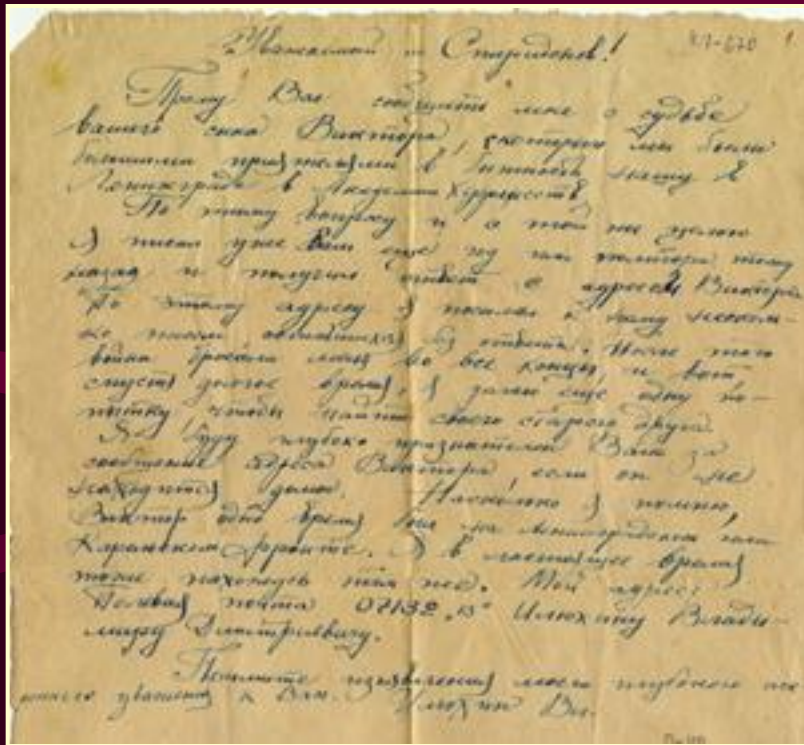 Уважаемый т. Спиридонов! КП-670 1
Прошу Вас сообщить мне о судьбе
вашего сына Виктора, с которым мы были
большими приятелями в бытность нашу в
Ленинграде в Академии Художеств.
По этому вопросу и о том же целью
Я писал уже Вам еще год или полтора тому
назад и получил ответ с адресом Виктора
По этому адресу Я послал к нему несколь-
ко писем без ответа. После того
война бросала меня во все концы, и вот
спустя долгое время, Я делаю еще одну по-
пытку, чтобы найти своего старого друга
Я буду глубоко признателен Вам за
сообщение адреса Виктора, если он не
находится дома. Насколько Я помню,
Виктор одно время был на Ленинградском или
Карельском фронте. Я в настоящее время
тоже нахожусь там же. Мой адрес:
Полевая почта 07132 "В" Илюхину Влади-
миру Дмитриевичу.
Примите изъявления моего глубокого ис-
реннего уважения к Вам. Илюхин Вл.